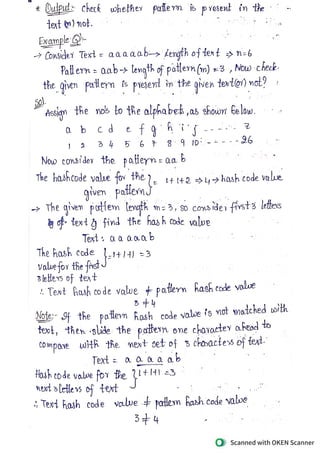 * Output:- Check whether pattern is present in the
text (or) not.
Example Q:-
→ Consider Text = aaaaab → Length of text ⇒ n=6
Pattern = aab → length of pattern (m) = 3, Now check
the given pattern is present in the given text(or) not?
Sol.
Assign the no's to the alphabets, as shown below.
a b c d e f g h i j - - - - - z
1 2 3 4 5 6 7 8 9 10 - - - - - 26
Now consider the pattern = aab
The hashcode value for the } = 1+1+2 ⇒ 4 → hash code value
given pattern
→ The given pattern length m=3, so consider first 3 letters
of text & find the hash code value
Text: aaaaab
The hash code } = 1+1+1 = 3
value for the first
3 letters of text
∴ Text hash code value ≠ pattern hash code value
3 ≠ 4
Note:- If the pattern hash code value is not matched with
text, then slide the pattern one character ahead to
compare with the next set of 3 characters of text.
Text = a a a a a b
Hash code value for the } 1+1+1 = 3
next 3 letters of text
∴ Text hash code value ≠ pattern hash code value
3 ≠ 4
Scanned with OKEN Scanner